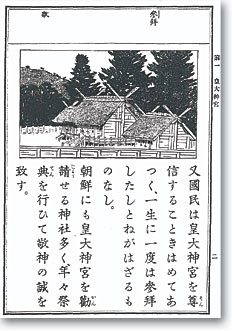 敬 参拝
第一 皇大神宮
二
又國民は皇大神宮を尊
信することきはめてあ
つく、一生に一度は參拜
したしとねがはざるも
のなし。
朝鮮にも皇大神宮を勸
請せる神社多く年々祭
典を行ひて敬神の誠を
致す。